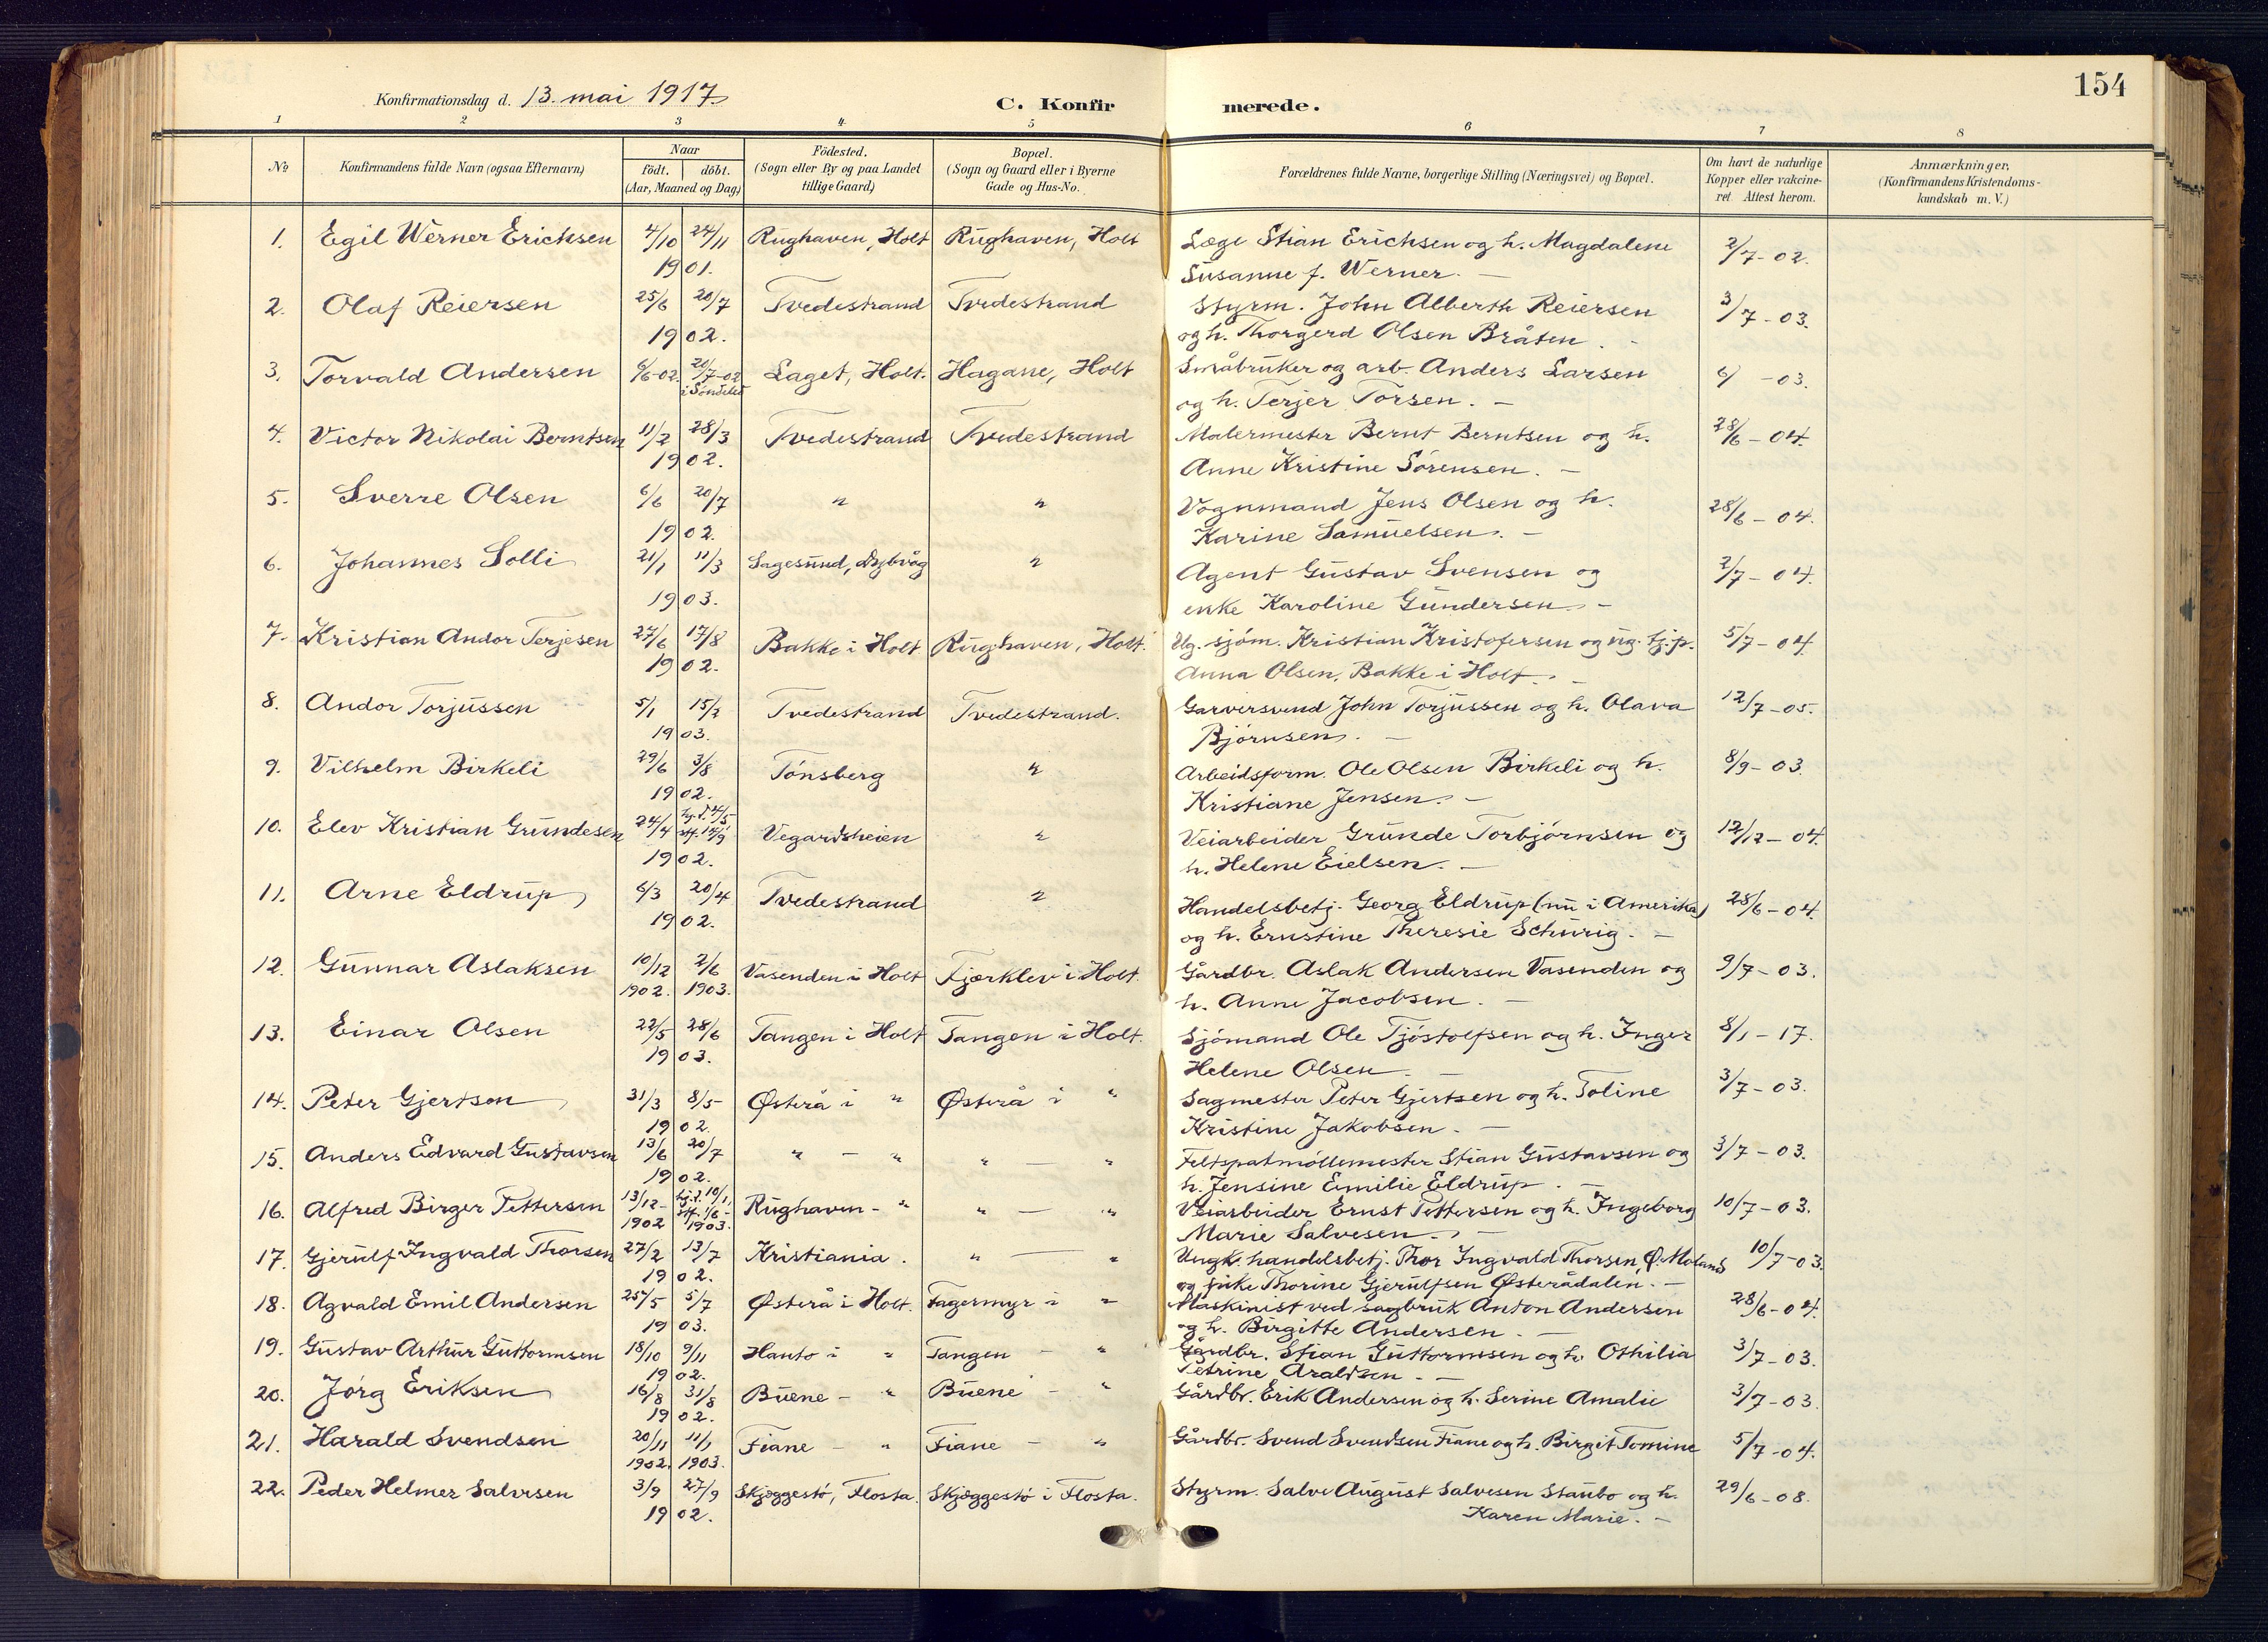 154
Konfirmationsdag d. 13. mai 1917.
C. Konfirmerede.
1 2 3 4 5 6 7 8
No
Konfirmandens fulde Navn (ogsaa Efternavn)
Naar
födt. | döbt.
(Aar, Maaned og Dag)
Födested.
(Sogn eller By og paa Landet
tillige Gaard)
Bopæl.
(Sogn og Gaard eller i Byerne
Gade og Hus-No.
Forældrenes fulde Navne, borgerlige Stilling (Næringsvei) og Bopæl.
Om havt de naturlige
Kopper eller vakcine-
ret. Attest herom.
Anmærkninger,
(Konfirmandens Kristendoms-
kundskab m. V.)
1. Egil Werner Erichsen 4/10 24/11 Rughaven, Holt Rughaven, Holt Læge Stian Erichsen og h. Magdalene 2/7-02.
1901. Susanne f. Werner. -
2. Olaf Reiersen 25/6 20/7 Tvedestrand Tvedestrand Styrm. John Alberth Reiersen 3/7-03.
1902. og h. Thorgerd Olsen Bråten. -
3. Torvald Andersen 6/6-02. 20/7-02 Laget, Holt. Hagane, Holt Småbruker og arb. Anders Larsen 6/ -03.
i Søndeled og h. Terjer Torsen. -
4. Victor Nikolai Berntsen 11/2 28/3 Tvedestrand Tvedestrand Malermester Bernt Berntsen og h. 28/6-04.
1902. Anne Kristine Sörensen. -
5. Sverre Olsen 6/6 20/7 " " Vognmand Jens Olsen og h. 28/6-04.
1902. Karine Samuelsen. -
6. Johannes Solli 21/1 11/3 Sagesund, Dybvåg " Agent Gustav Svensen og 2/7-04.
1903. enke Karoline Gundersen. -
7. Kristian Andor Terjesen 27/6 17/8 Bakke i Holt Rughaven, Holt. Ug. sjöm. Kristian Kristofersen og ug. tj.p. 5/7-04.
1902. Anna Olsen, Bakke i Holt. -
8. Andor Torjussen 5/1 15/2 Tvedestrand Tvedestrand. Garversvend John Torjussen og h. Olava 12/7-05.
1903. Björnsen. -
9. Vilhelm Birkeli 29/6 3/8 Tönsberg " Arbeidsform. Ole Olsen Birkeli og h. 8/9-03.
1902. Kristiane Jensen. -
10. Elev Kristian Grundesen 24/4 Vegardsheien " Veiarbeider Grunde Torbjörnsen og 12/12-04.
1902. h. Helene Eielsen. -
11. Arne Eldrup 6/3 20/4 Tvedestrand " Handelsbetj. Georg Eldrup (nu i Amerika) 28/6-04.
1902. og h. Ernstine Theresie Schurig. -
12. Gunnar Aslaksen 10/12 2/6 Vasenden i Holt Fjærklev i Holt. Gårdbr. Aslak Andersen Vasenden og 9/7-03.
1902. 1903. h. Anne Jacobsen. -
13. Einar Olsen 22/5 28/6 Tangen i Holt Tangen i Holt. Sjömand Ole Tjöstolfsen og h. Inger 8/1-17.
1903. Helene Olsen. -
14. Peter Gjertsen 31/3 8/5 Østerå i " Østerå i " Sagmester Peter Gjertsen og h. Toline 3/7-03.
1902. Kristine Jakobsen. -
15. Anders Edvard Gustavsen 13/6 20/7 " - " " - " Feltspatmöllemester Stian Gustavsen og 3/7-03.
1902. h. Jensine Emilie Eldrup. -
16. Alfred Birger Pettersen 13/12- hj.d. 10/1, Rughaven - " " - " Veiarbeider Ernst Pettersen og h. Ingeborg 10/7-03.
1902 1903. Marie Salvesen. -
17. Gjerulf Ingvald Thorsen 27/2 13/7 Kristiania. " - " Ungk. handelsbetj. Thor Ingvald Thorsen, Ø. Moland 10/7-03.
1902. og pike Thorine Gjerulfsen Østerådalen. -
18. Agvald Emil Andersen 25/5 5/7 Østerå i Holt. Fagermyr i " Maskinist ved sagbruk Anton Andersen 28/6-04.
1903. og h. Birgitte Andersen. -
19. Gustav Arthur Guttormsen 18/10 9/11 Hanto i " Tangen - " Gårdbr. Stian Guttormsen og h. Othilia 3/7-03.
1902. Petrine Araldsen. -
20. Jörg Eriksen 16/8 31/8 Buene - " Buene - " Gårdbr. Erik Andersen og h. Serine Amalie 3/7-03.
1902.
21. Harald Svendsen 20/11 11/1 Fiane - " Fiane - " Gårdbr. Svend Svendsen Fiane og h. Birgit Tomine 5/7-04.
1902. 1903.
22. Peder Helmer Salvesen 3/9 27/9 Skjæggestö, Flosta. Skjæggestö i Flosta. Styrm. Salve August Salvesen Staubo og h. 29/6-08.
1902. Karen Marie. -